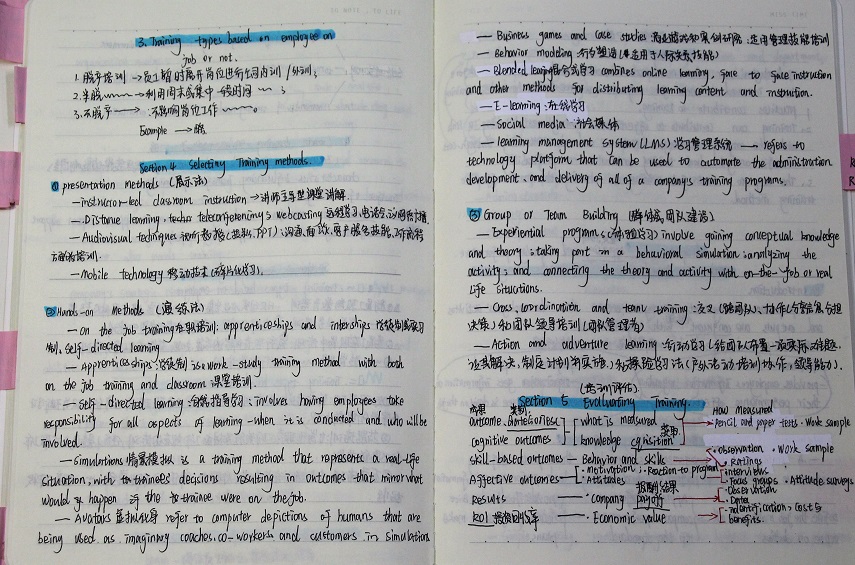 3. Training types based on employee on
job or not.
1. 脱产培训 → 员工暂时离开岗位进行的内训/外训;
2. 半脱 → 利用周末或集中一段时间 ;
3. 不脱产 → 不影响岗位工作
Example → 脱
Section 4 Selecting Training methods.
① presentation methods (展示法)
— instructor-led classroom instruction → 讲师主导型课堂讲解
— Distance learning,
— Audiovisual techniques 视听教授 PPT): 沟通, 面谈, 客户服务技能, 工作流程
方面的培训.
— Mobile technology 移动技术
② Hands-on Methods (演练法)
— On the job training 在职培训: apprenticeships and internships
制, self-directed learning
— Apprenticeships 学徒制 is a work-study training method with both
on the job training and classroom 课堂培训.
— Self-directed learning 自我指导学习: involves having employees take
responsibility for all aspects of learning - when it is conducted and who will be
involved.
— Simulations 情景模拟 is a training method that represents a real-life
situation, with trainees decisions resulting in outcomes that mirror what
would happen if the trainee were on the job.
— Avatars 虚拟化身 refer to computer depictions of humans that are
being used as imaginary coaches, co-workers and customers in simulations
— Business games and case studies 商业游戏和案例研究: 适用管理技能培训
— Behavior modeling: 行为塑造 (适用于人际关系技能)
— Blended learning 混合式学习 combines online learning, face to face instruction
and other methods for distributing learning content and instruction.
— E-learning: 在线学习
— Social media: 社会媒体
— learning management system (LMS) 学习管理系统 — refers to
technology platform that can be used to automate the administration
development, and delivery of all of a company's training programs.
③ Group or Team Building (群体或团队建设)
— Experiential program: (体验学习) involve gaining conceptual knowledge
and theory; taking part in a behavioral simulation; analyzing the
activity; and connecting the theory and activity with on-the-job or real
life situations.
— Cross, coordination and team training: 交叉 (跨团队), 协作
决策) 和团队领导培训 (团队管理者)
— Action and adventure learning: 行动学习 (给团队布置一项实际难题,
让其解决, 制定计划并实施.) 和探险学习法 (户外活动培训协作, 领导能力).
(培训评估)
Section 5 Evaluating Training.
成果 类别: How measured
outcome categories: what is measured pencil and paper tests · Work sample
cognitive outcomes knowledge 获取
skill-based outcomes — Behavior and skills · observation · Work sample
· Ratings
Affective outcomes · motivation; · Reaction to program · interviews
· Attitudes · Focus groups · Attitude surveys
Results — · Company payoff · Observation
· Data
ROI 投资回报率 — · Economic value · identification · Costs
benefits.